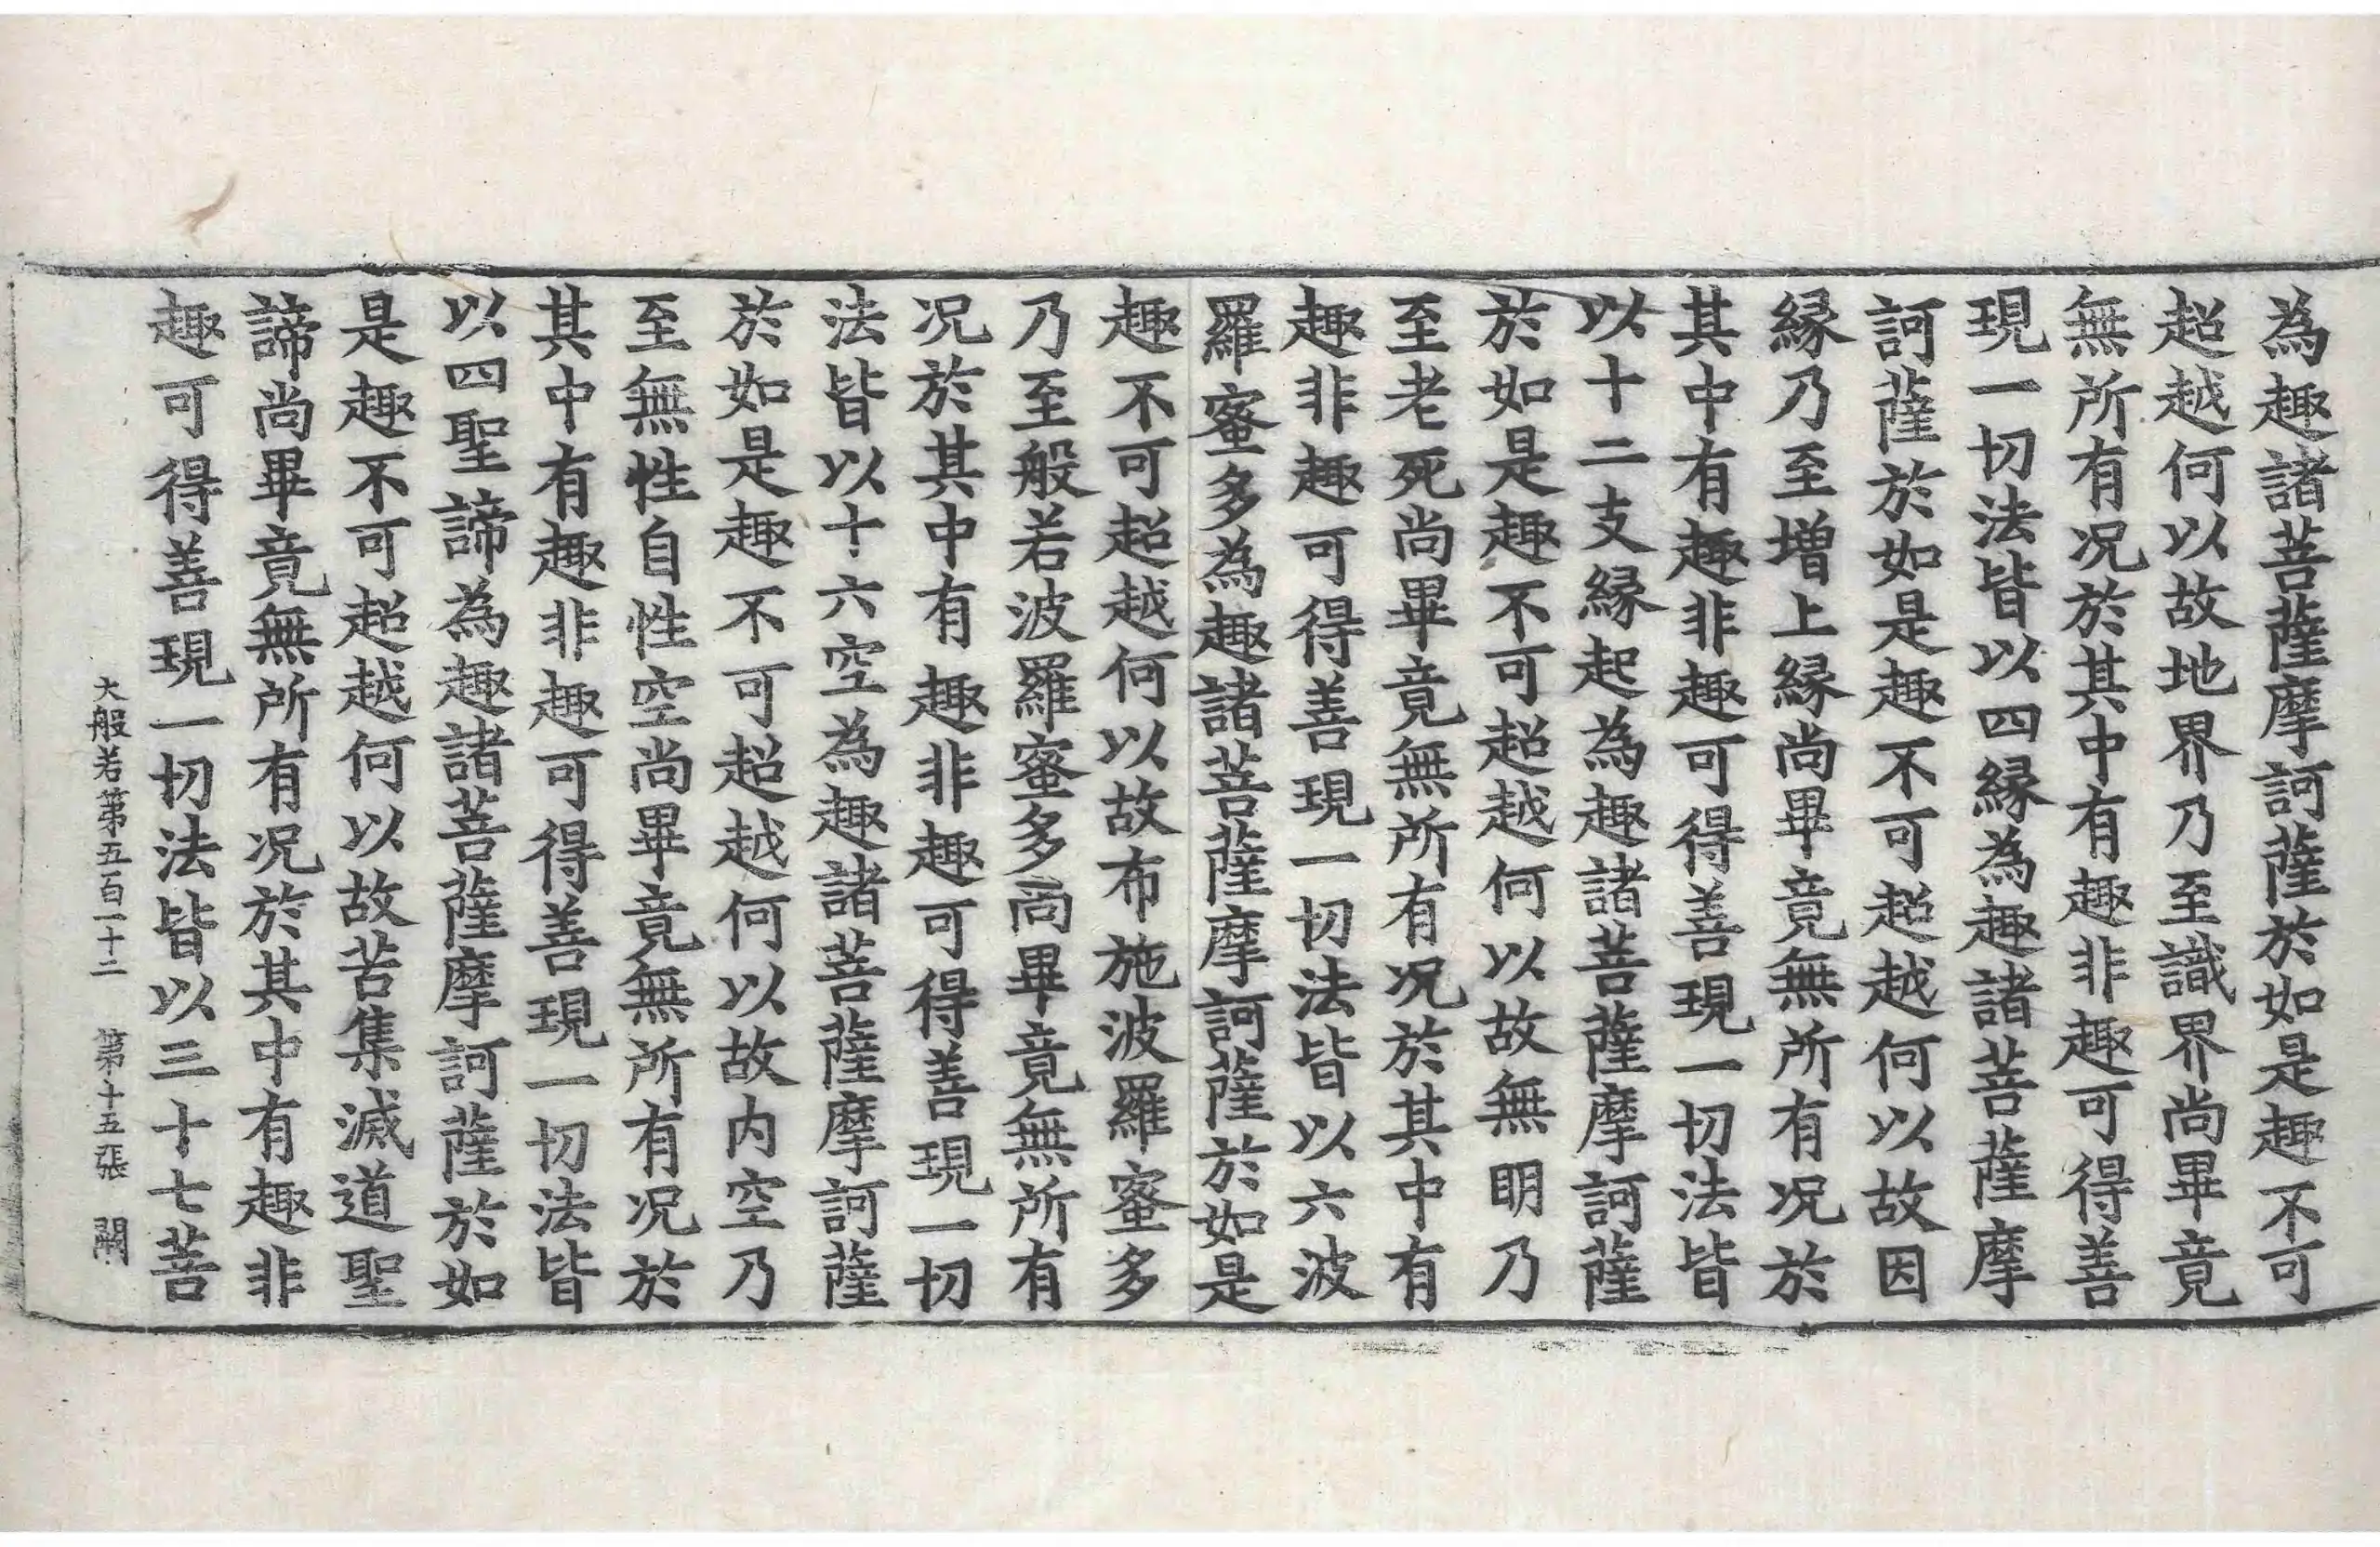 為趣諸菩薩摩訶薩於如是趣不可
超越何以故地界乃至識界尚畢竟
無所有况於其中有趣非趣可得善
現一切法皆以四縁為趣諸菩薩摩
訶薩於如是趣不可超越何以故因
縁乃至增上縁尚畢竟無所有况於
其中有趣非趣可得善現一切法皆
以十二支縁起為趣諸菩薩摩訶薩
於如是趣不可超越何以故無明乃
至老死尚畢竟無所有况於其中有
趣非趣可得善現一切法皆以六波
羅蜜多為趣諸菩薩摩訶薩於如是
趣不可超越何以故布施波羅蜜多
乃至般若波羅蜜多尚畢竟無所有
况於其中有趣非趣可得善現一切
法皆以十六空為趣諸菩薩摩訶薩
於如是趣不可超越何以故内空乃
至無性自性空尚畢竟無所有况於
其中有趣非趣可得善現一切法皆
以四聖諦為趣諸菩薩摩訶薩於如
是趣不可超越何以故苦集滅道聖
諦尚畢竟無所有况於其中有趣非
趣可得善現一切法皆以三十七菩
大般若第五百一十二 第十五張 闕